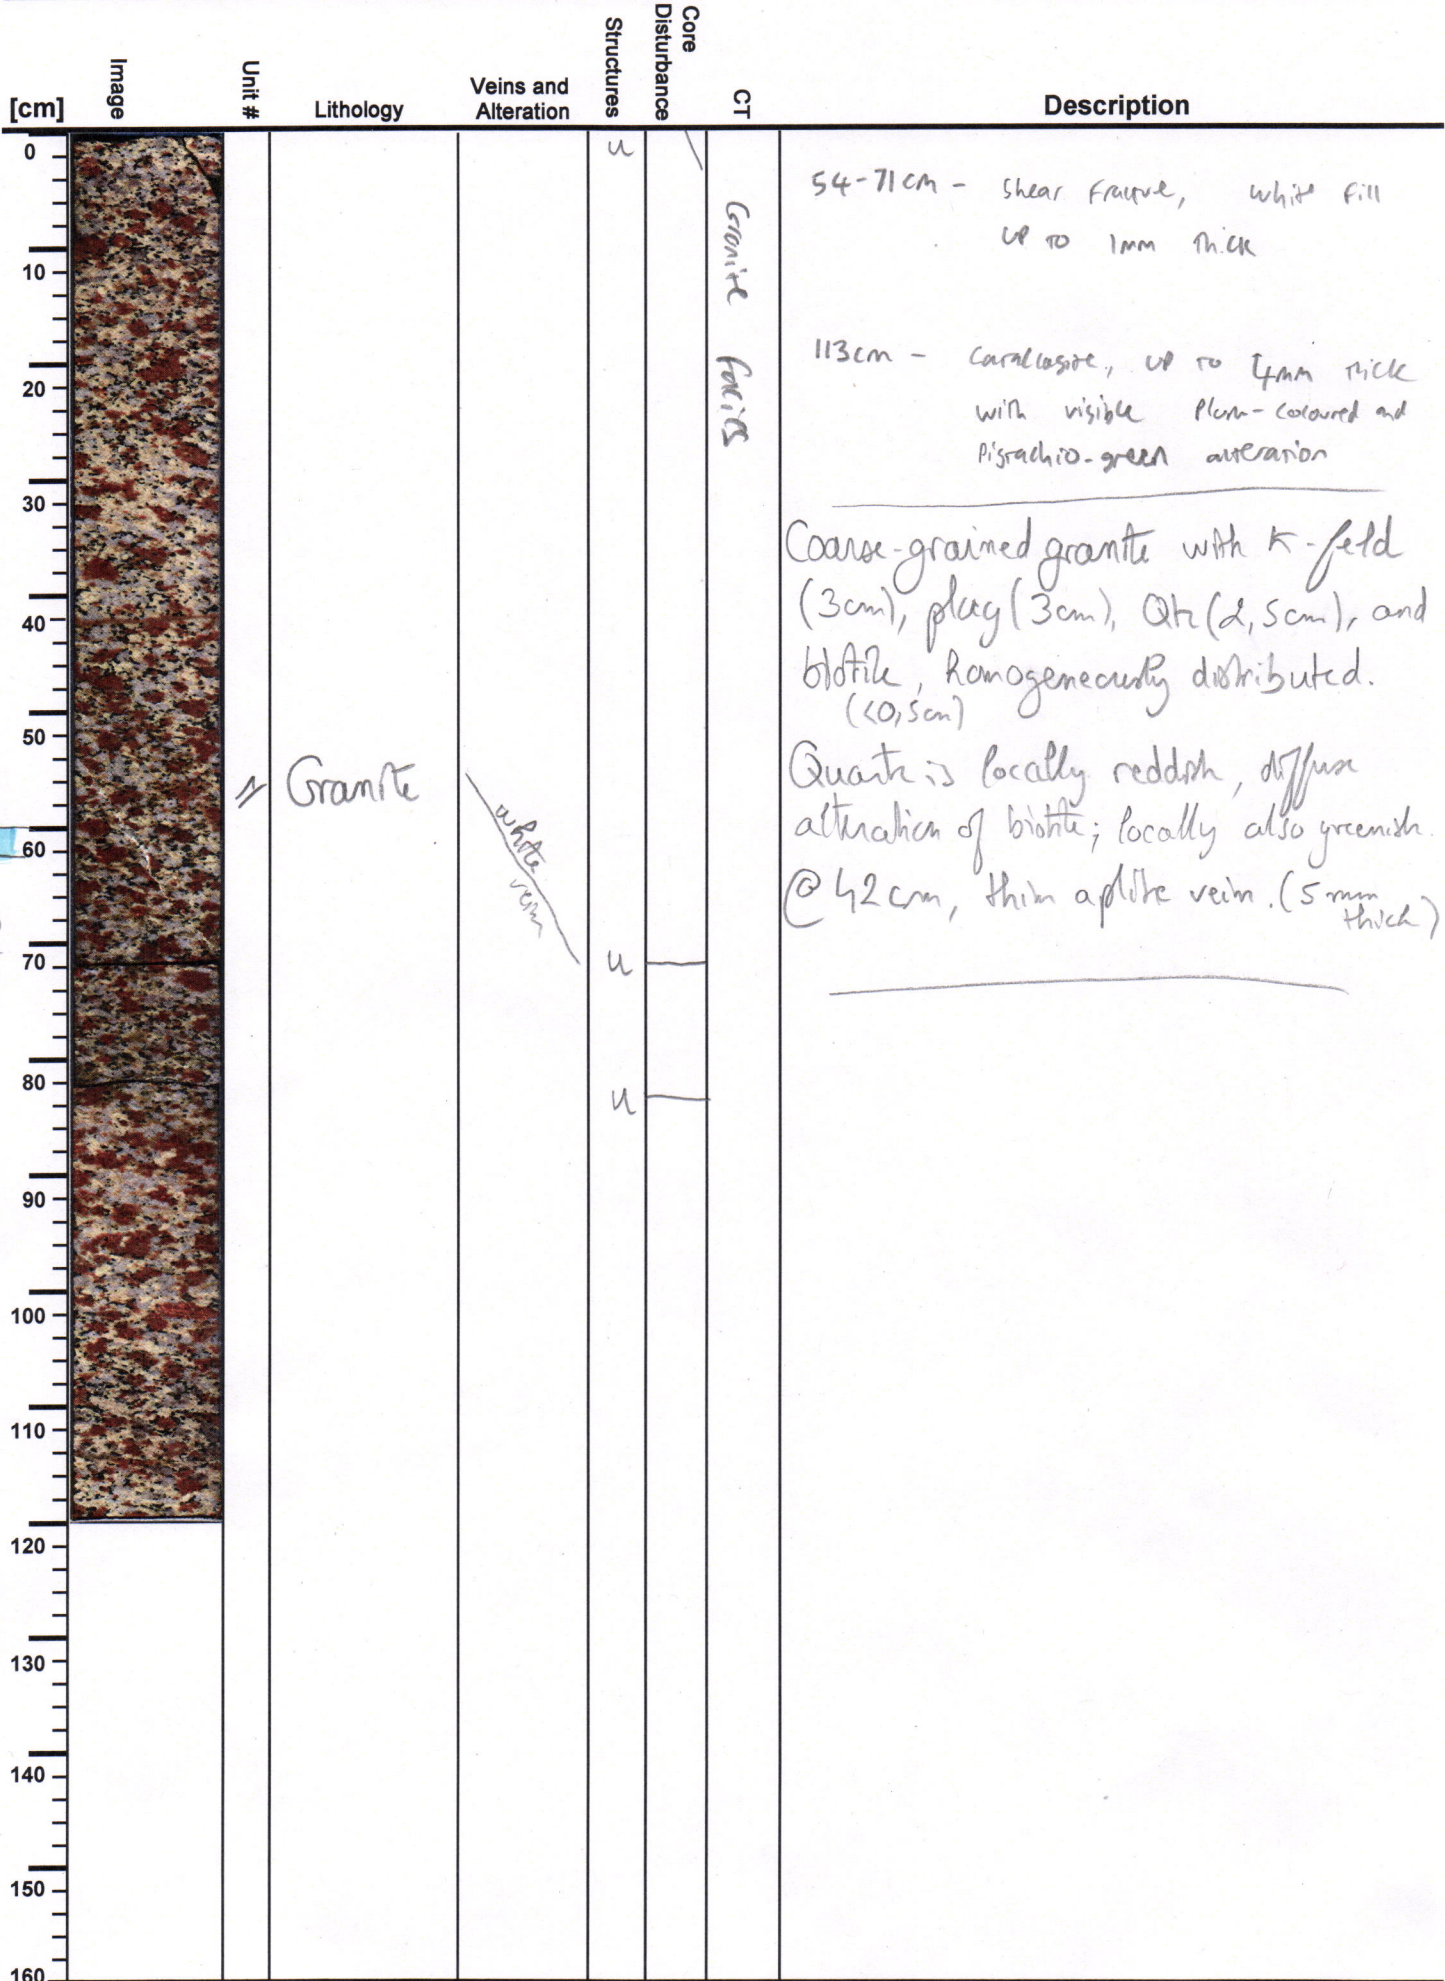 [cm]
Image
Unit #
Lithology
Veins and
Alteration
Structures
Core
Disturbance
CT
Description
0
10
20
30
40
50
60
70
80
90
100
110
120
130
140
150
160
u
u
u
Granite
white
vein
Granite facies
54-71cm - Shear Fracture, white fill
up to 1mm thick
113cm - Cataclasite, up to 4mm thick
with visible Plum-coloured and
Pistachio-green alteration
Coarse-grained granite with K-feld
(3cm), plag (3cm), Qtz (2,5cm), and
biotite, homogeneously distributed.
(<0,5cm)
Quartz is locally reddish, diffuse
alteration of biotite; locally also greenish.
@ 42 cm, thin aplite vein. (5 mm
thick)